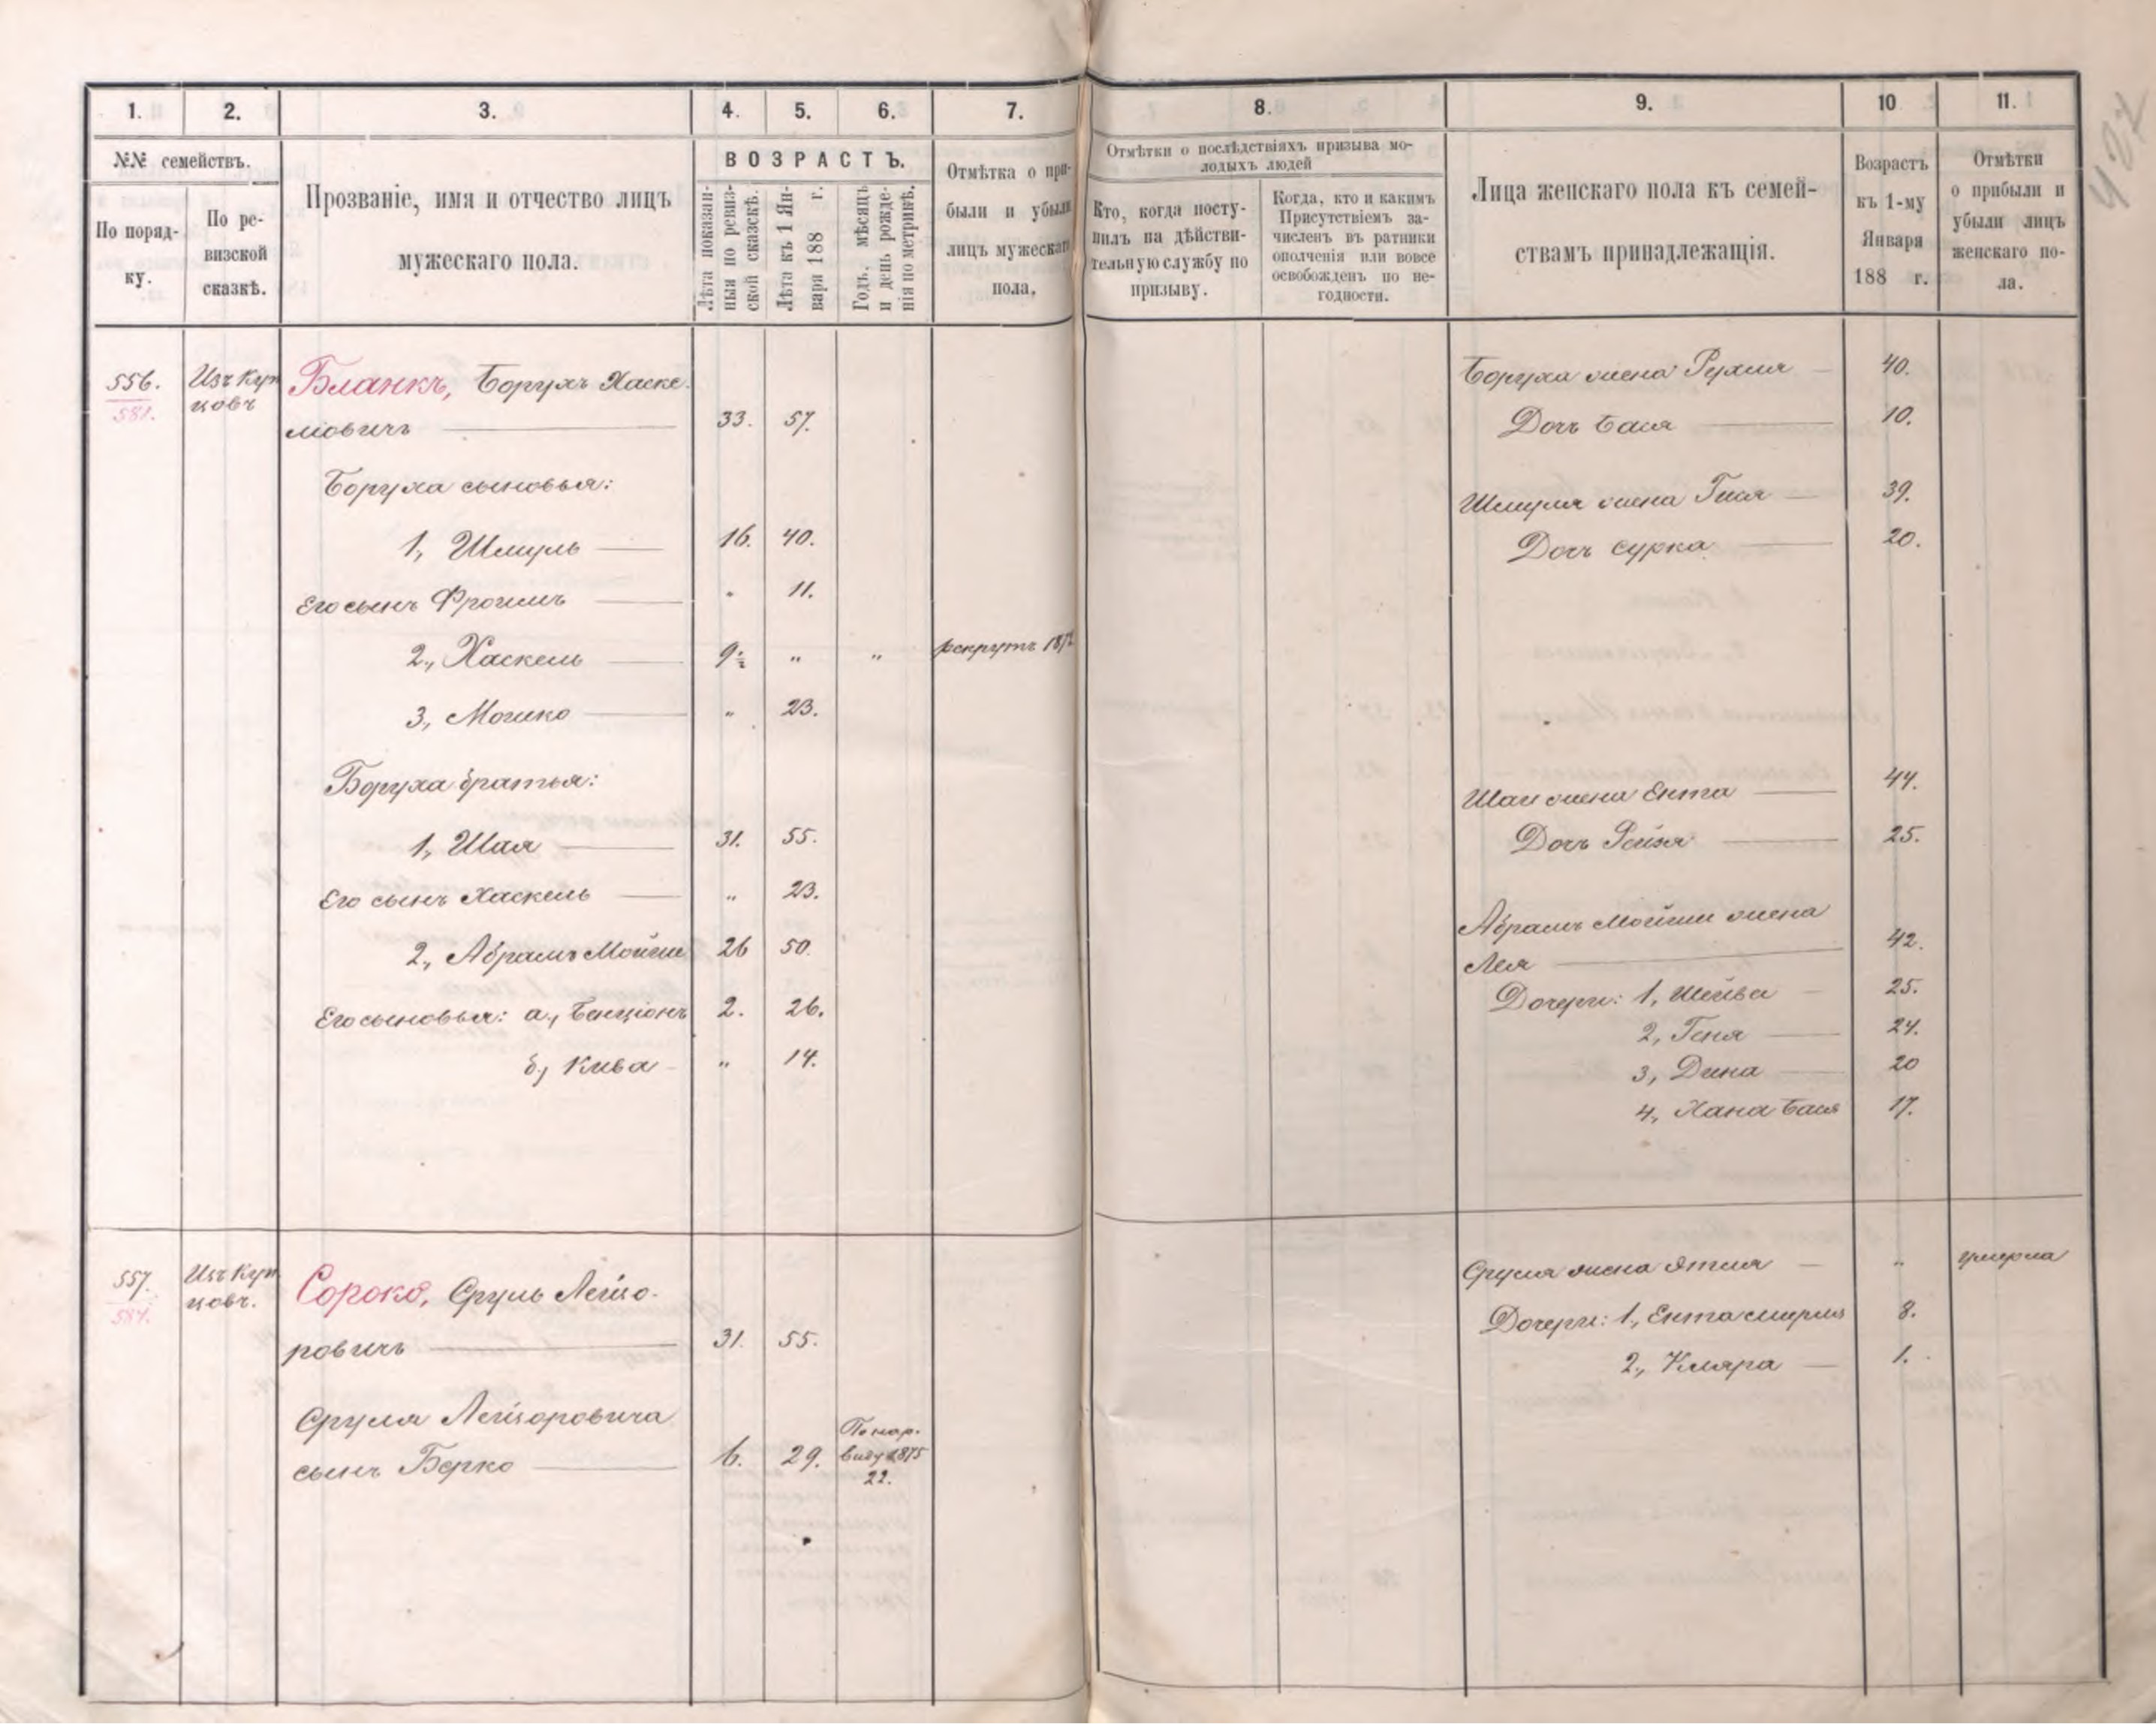 1.
2.
3.
4.
5.
6.
7.
8.
9.
10
11.
№№ семействъ.
По поряд-
ку.
По ре-
визской
сказкѣ.
Прозваніе, имя и отчество лицъ
мужескаго пола.
ВОЗРАСТЪ.
Лѣта показан-
ныя по ревиз-
ской сказкѣ.
Лѣта къ 1 Ян-
варя 188 г.
Годъ, мѣсяцъ
и день рожде-
нія по метрикѣ.
Отмѣтка о при-
были и убыли
лицъ мужескаго
пола.
Отмѣтки о послѣдствіяхъ призыва мо-
лодыхъ людей
Кто, когда посту-
пилъ на дѣйстви-
тельную службу по
призыву.
Когда, кто и какимъ
Присутствіемъ за-
численъ въ ратники
ополченія или вовсе
освобожденъ по не-
годности.
Лица женскаго пола къ семей-
ствамъ принадлежащія.
Возрастъ
къ 1-му
Января
188 г.
Отмѣтки
о прибыли и
убыли лицъ
женскаго по-
ла.
427
556.
581.
Изъ Куп
цовъ
Бланкъ, Борухъ Хаске-
лювичъ 33. 57.
Боруха сыновья:
1, Шмуль 16. 40.
Его сынъ Фроимъ " 11.
2, Хаскель 9½ " " рекрутъ 1872
3, Мошко " 23.
Боруха братья:
1, Шая 31. 55.
Его сынъ Хаскель " 23.
2, Абрамъ Мойше 26 50.
Его сыновья: а, Бенціонъ 2. 26.
б, Кива " 14.
Боруха жена Рухля 40.
Дочь Бася 10.
Шмуля жена Гися 39.
Дочь Сурка 20.
Шаи жена Ента 44.
Дочь Рейзя 25.
Абрамъ Мойши жена
Лея 42.
Дочери: 1, Шейва 25.
2, Геня 24.
3, Дина 20
4, Хана Бася 17.
557.
584.
Изъ Куп
цовъ.
Сороко, Сруль Лейзо-
ровичъ 31. 55.
Сруля Лейзоровича
сынъ Берко 6. 29.
По нар.
виду 1875
22.
Сруля жена Этля " умерла
Дочери: 1, Ента 8.
2, Кляра 1.